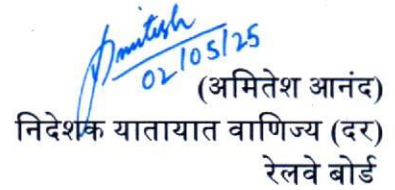 Amitesh
02/05/25
(अमितेश आनंद)
निदेशक यातायात वाणिज्य (दर)
रेलवे बोर्ड